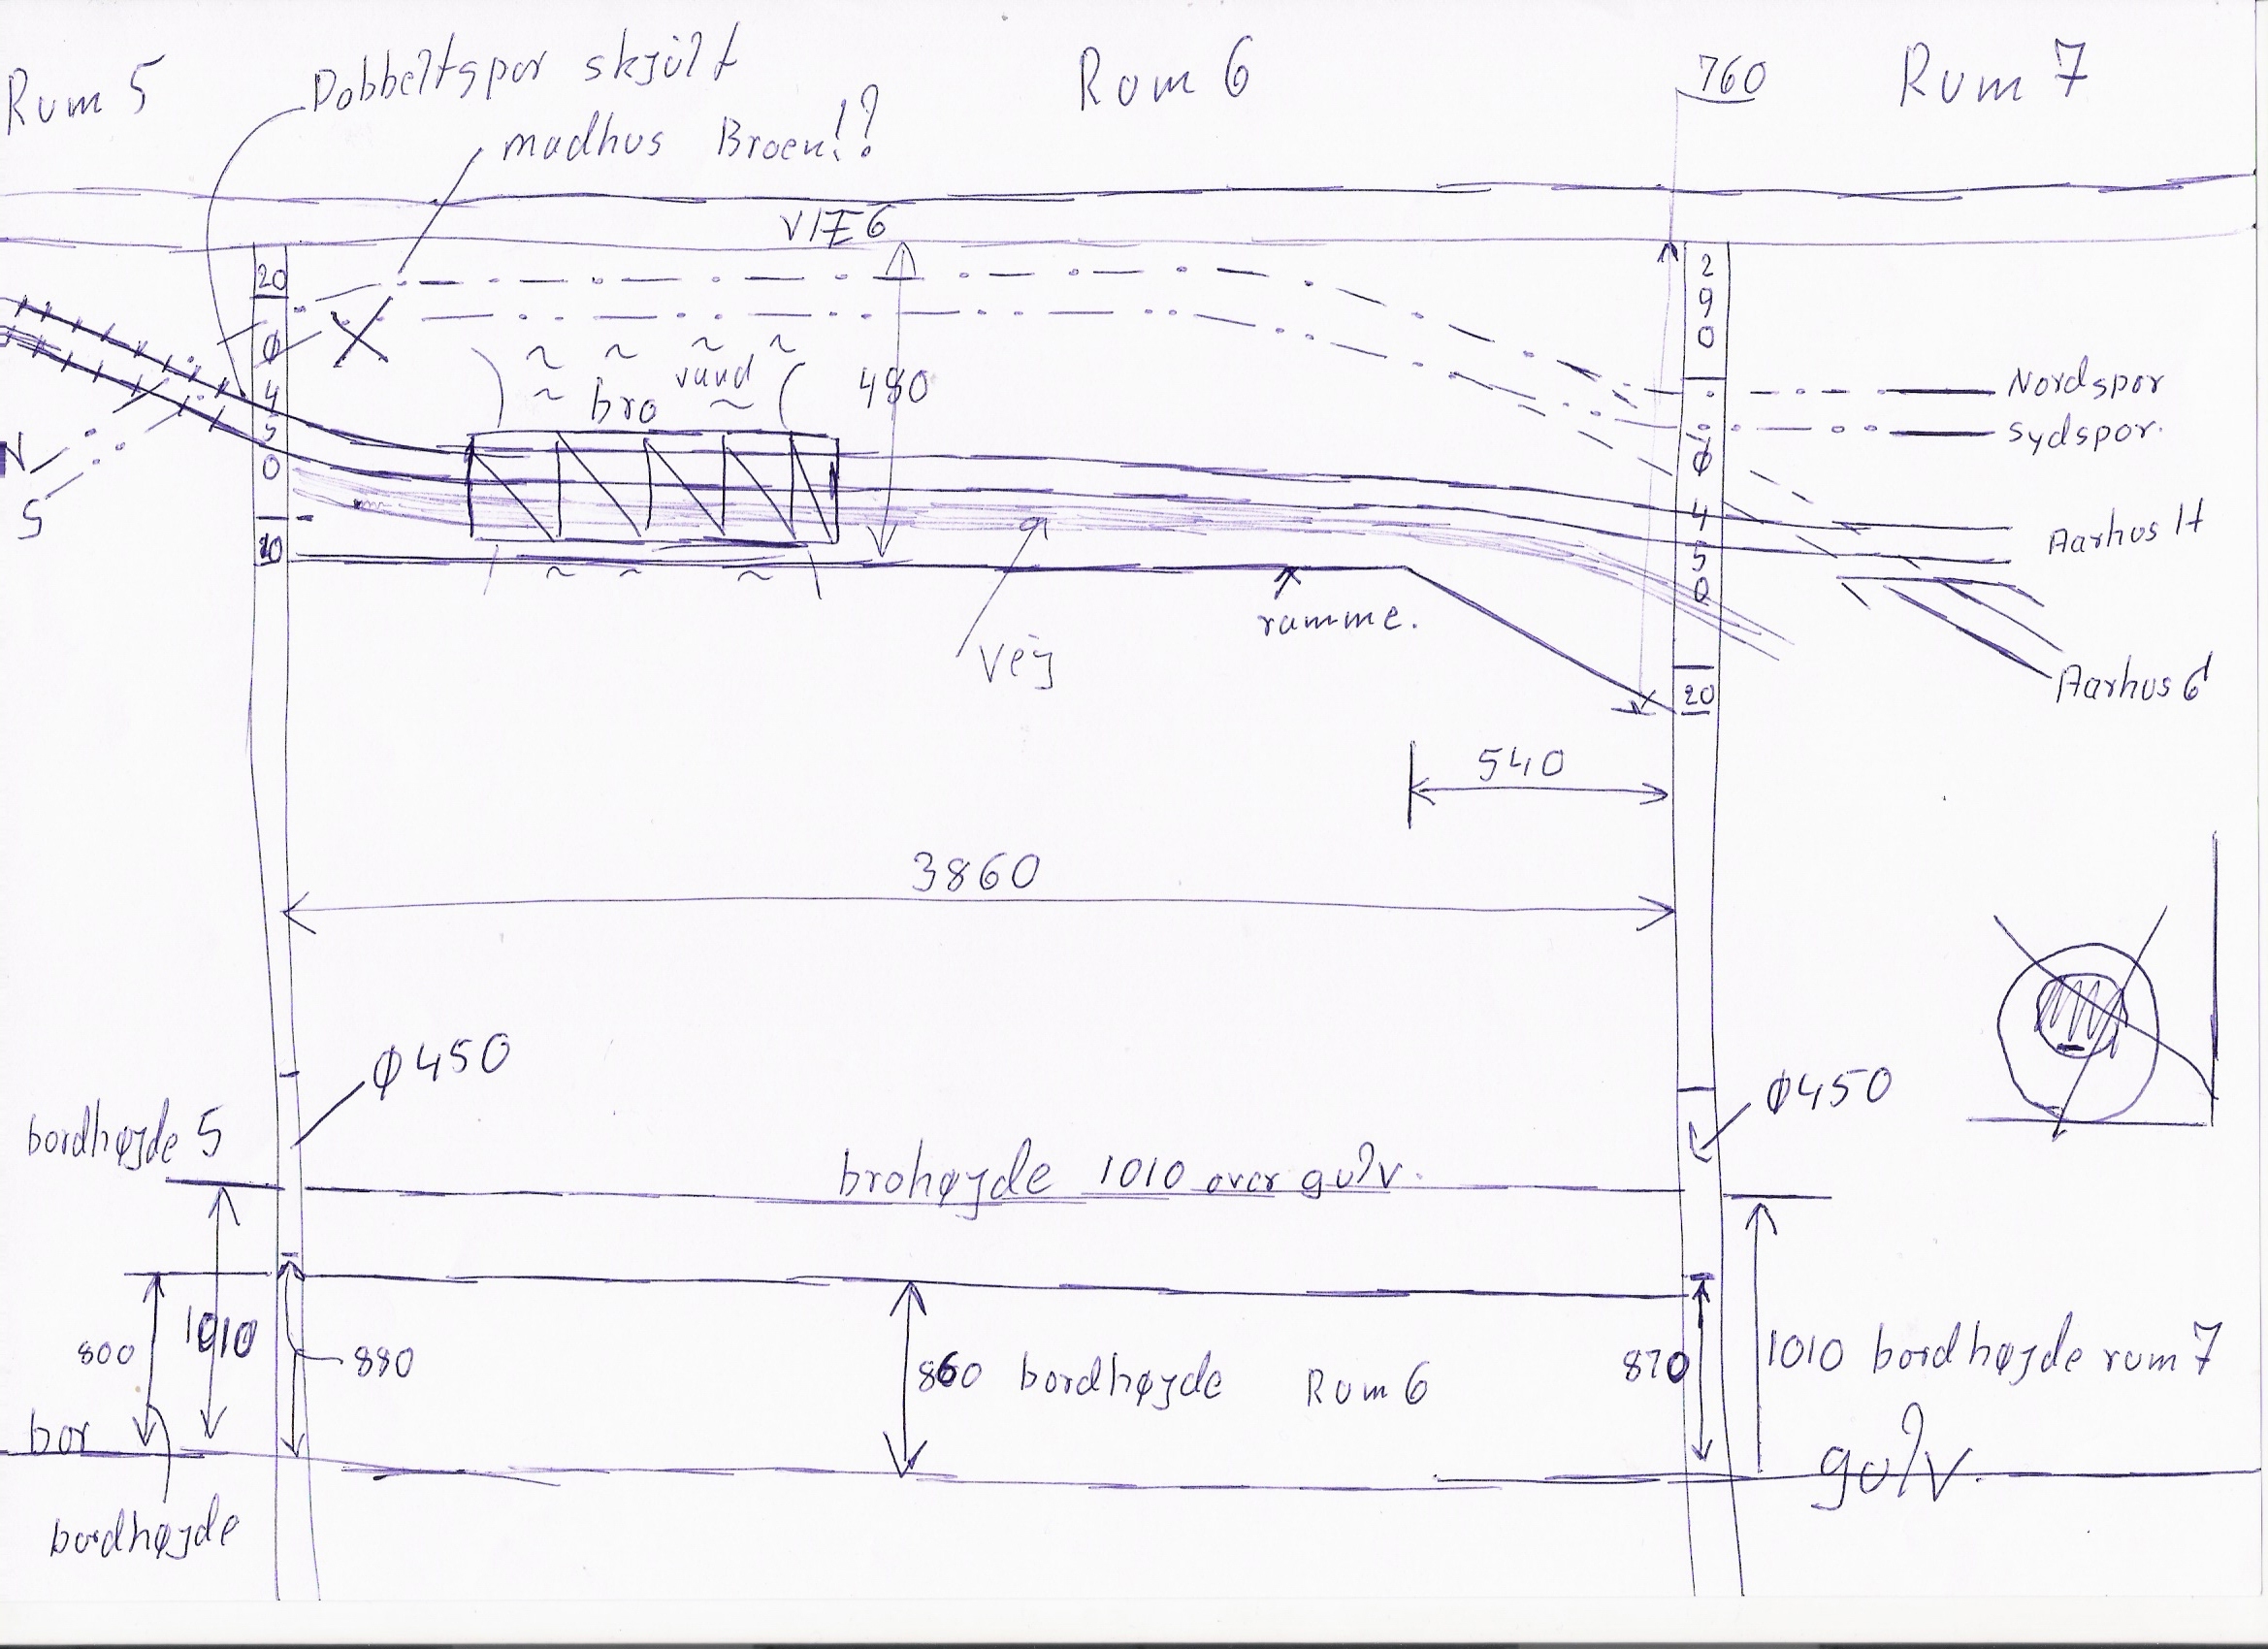 Rum 5
Dobbeltspor skjült
madhus Broen!?
Rum 6
760
Rum 7
20
Ø
4
5
0
20
N
S
vand
bro
490
2
9
0
Ø
4
5
0
20
Nordspor
Sydspor.
Aarhus H
Aarhus G
ramme.
Vej
540
3860
Ø450
Ø450
bordhøjde 5
brohøjde 1010 over gulv.
800
1010
880
860 bordhøjde Rum 6
870
1010 bordhøjde rum 7
bor
gulv.
bordhøjde